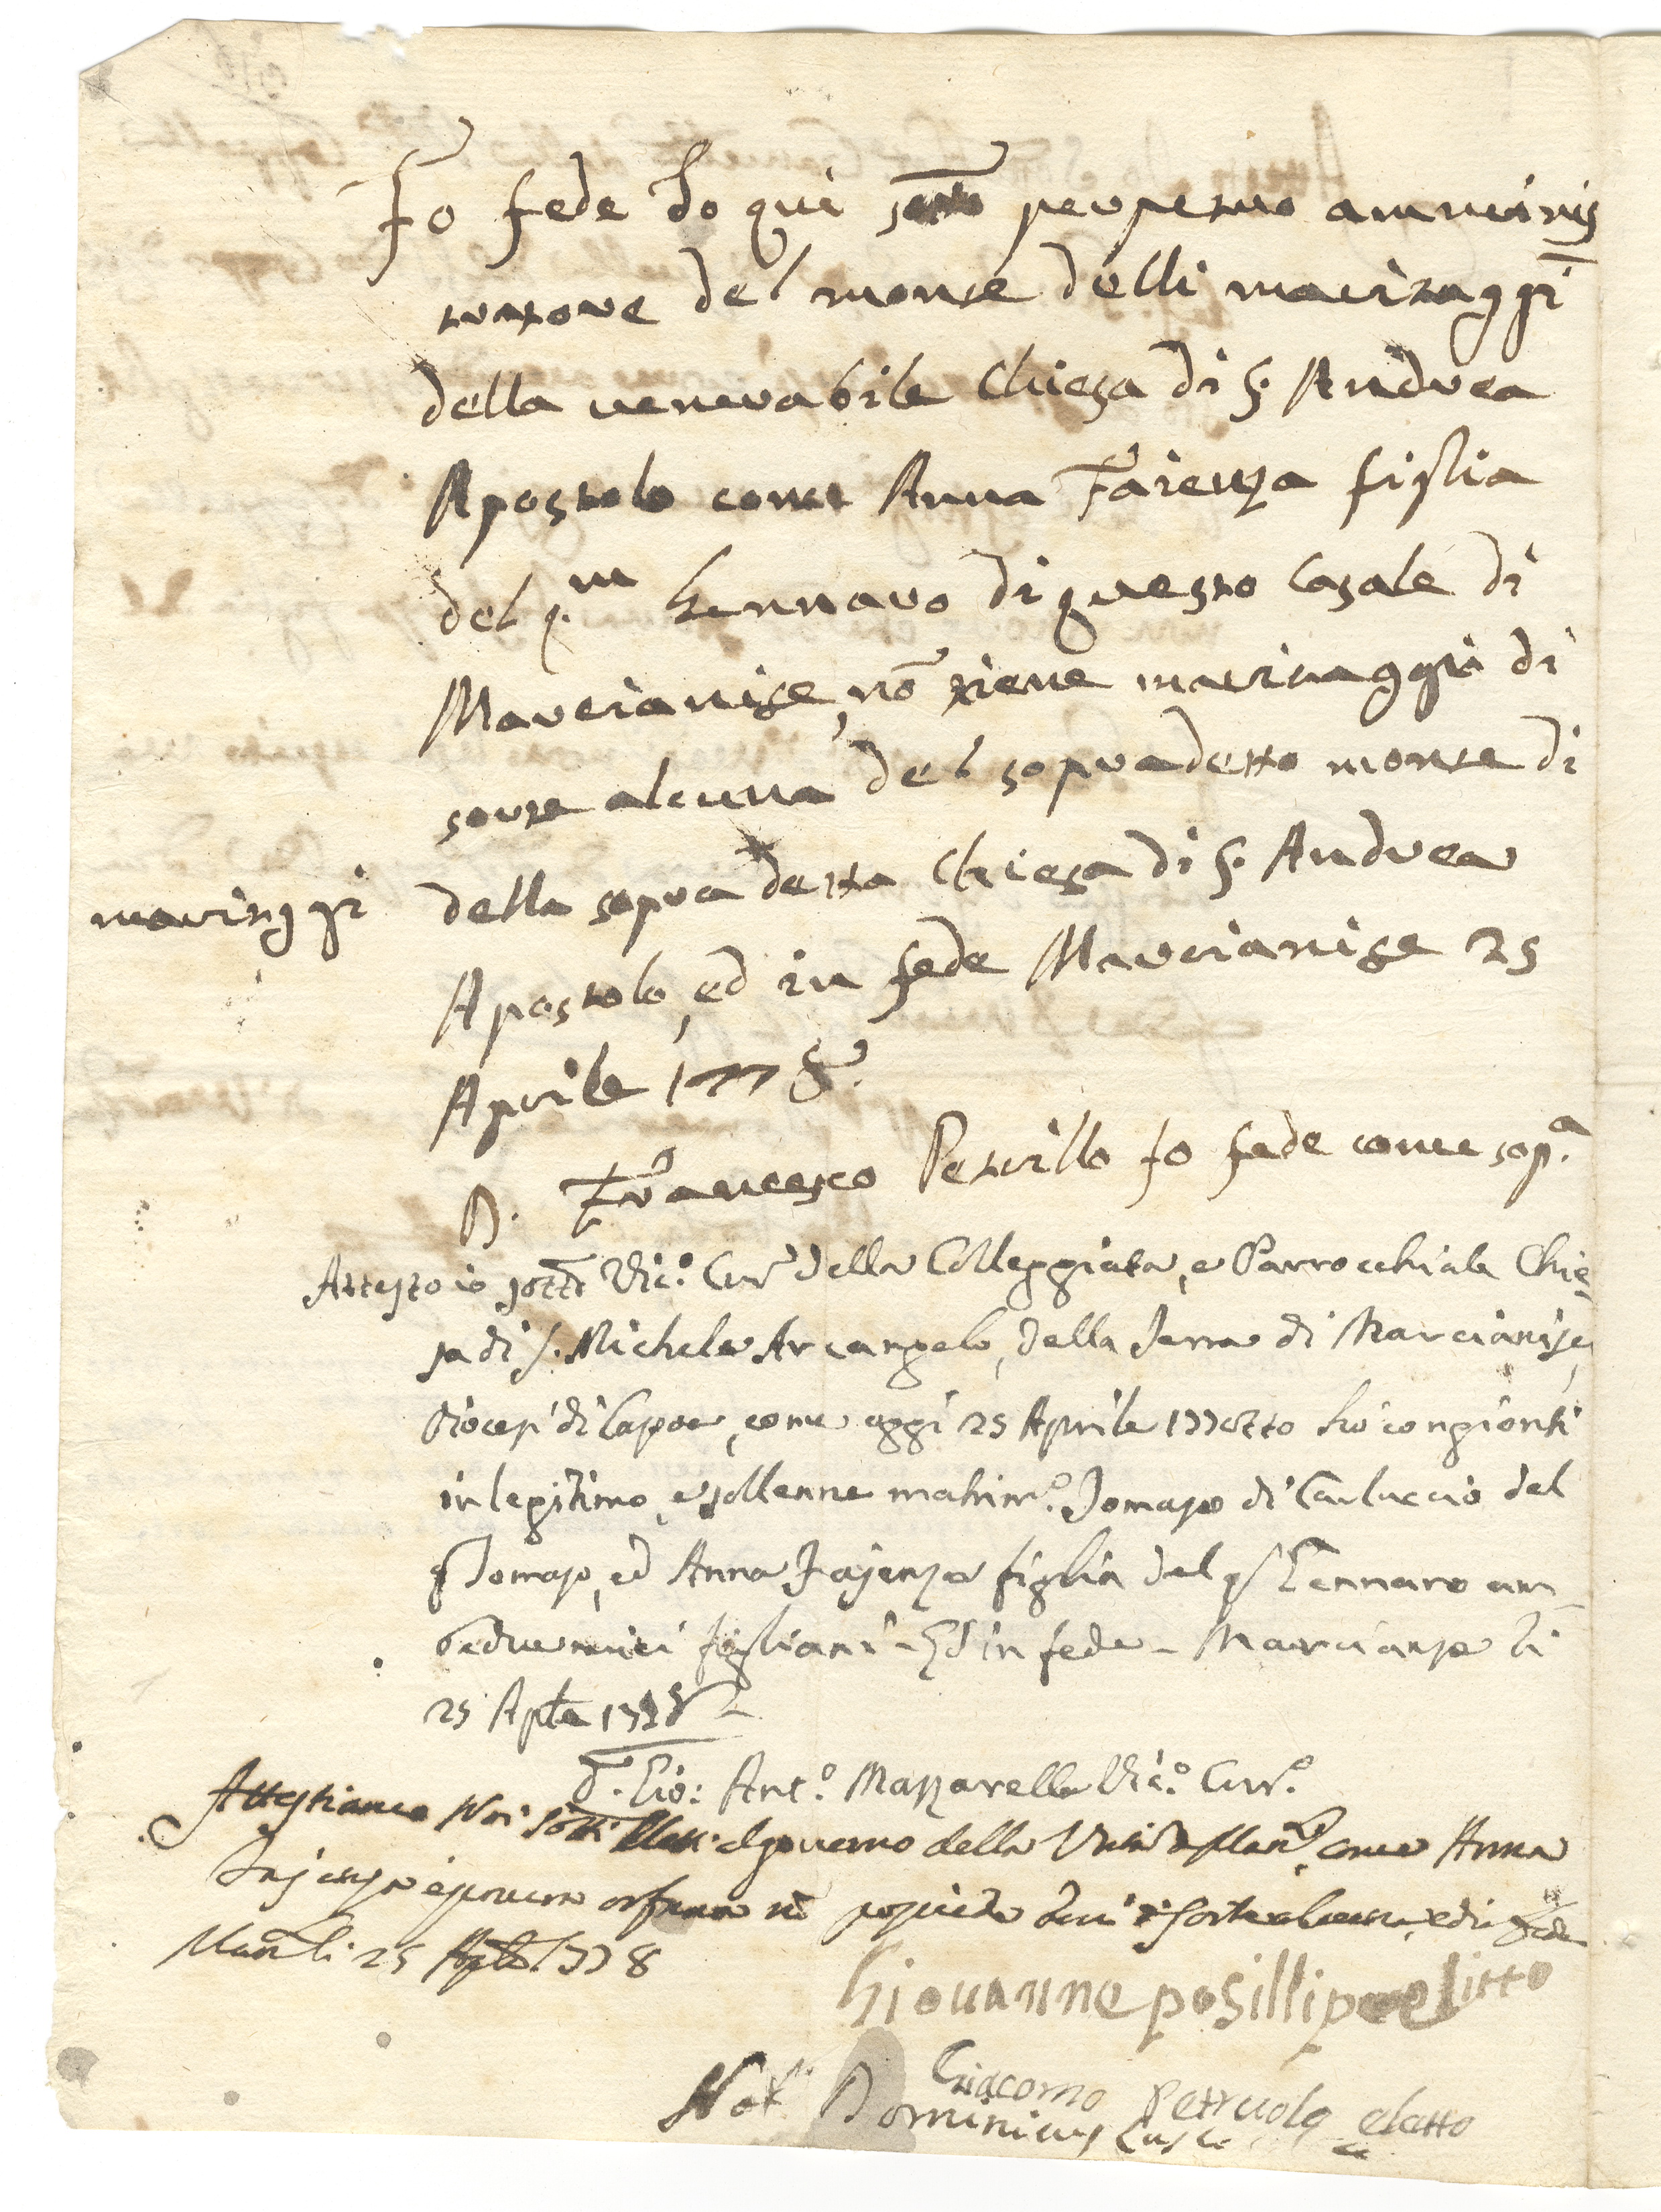 Fo fede Io qui sotto perpetuo amminis
tratore del monte delli maritaggi
della venerabile Chiesa di S. Andrea
Apostolo come Anna Faienza figlia
del q.m Gennaro di questo Casale di
Marcianise, nō tiene maritaggio di
sorte alcuna del sopradetto monte di
maritggi della sopra detta Chiesa di S. Andrea
Apostolo, ed in fede Marcianise 25
Aprile 1778.
D. Francesco Petrillo fo fede come sop.a
Attesto io sott.tto Vic.o Cur.o della Colleggiata, e Parrocchiale Chie
sa di S. Michele Arcangelo, della Terra di Marcianise,
Diocesi di Capoa, come oggi 25 Aprile 177otto hò congionti
in legitimo, e sollenne matrim.o Tomaso di Carluccio del
q Tomaso, ed Anna Fajenza figlia del q Gennaro am
bedue miei figliani - Ed in fede - Marcianise li
25 Aple 1778
D. Gio: Ant.o Mazzarella Vic.o Cur.o
Attestiamo Noi sotti Eletti al governo della Unità di Mar, come Anna
Fajenza è povera orfana nō possiede beni di sorte alcuna, ed in fede
Mar li 25 Aple 1778
Giouanne posillipo elitto
Giacomo Petruolo eletto
Not. Dominicus